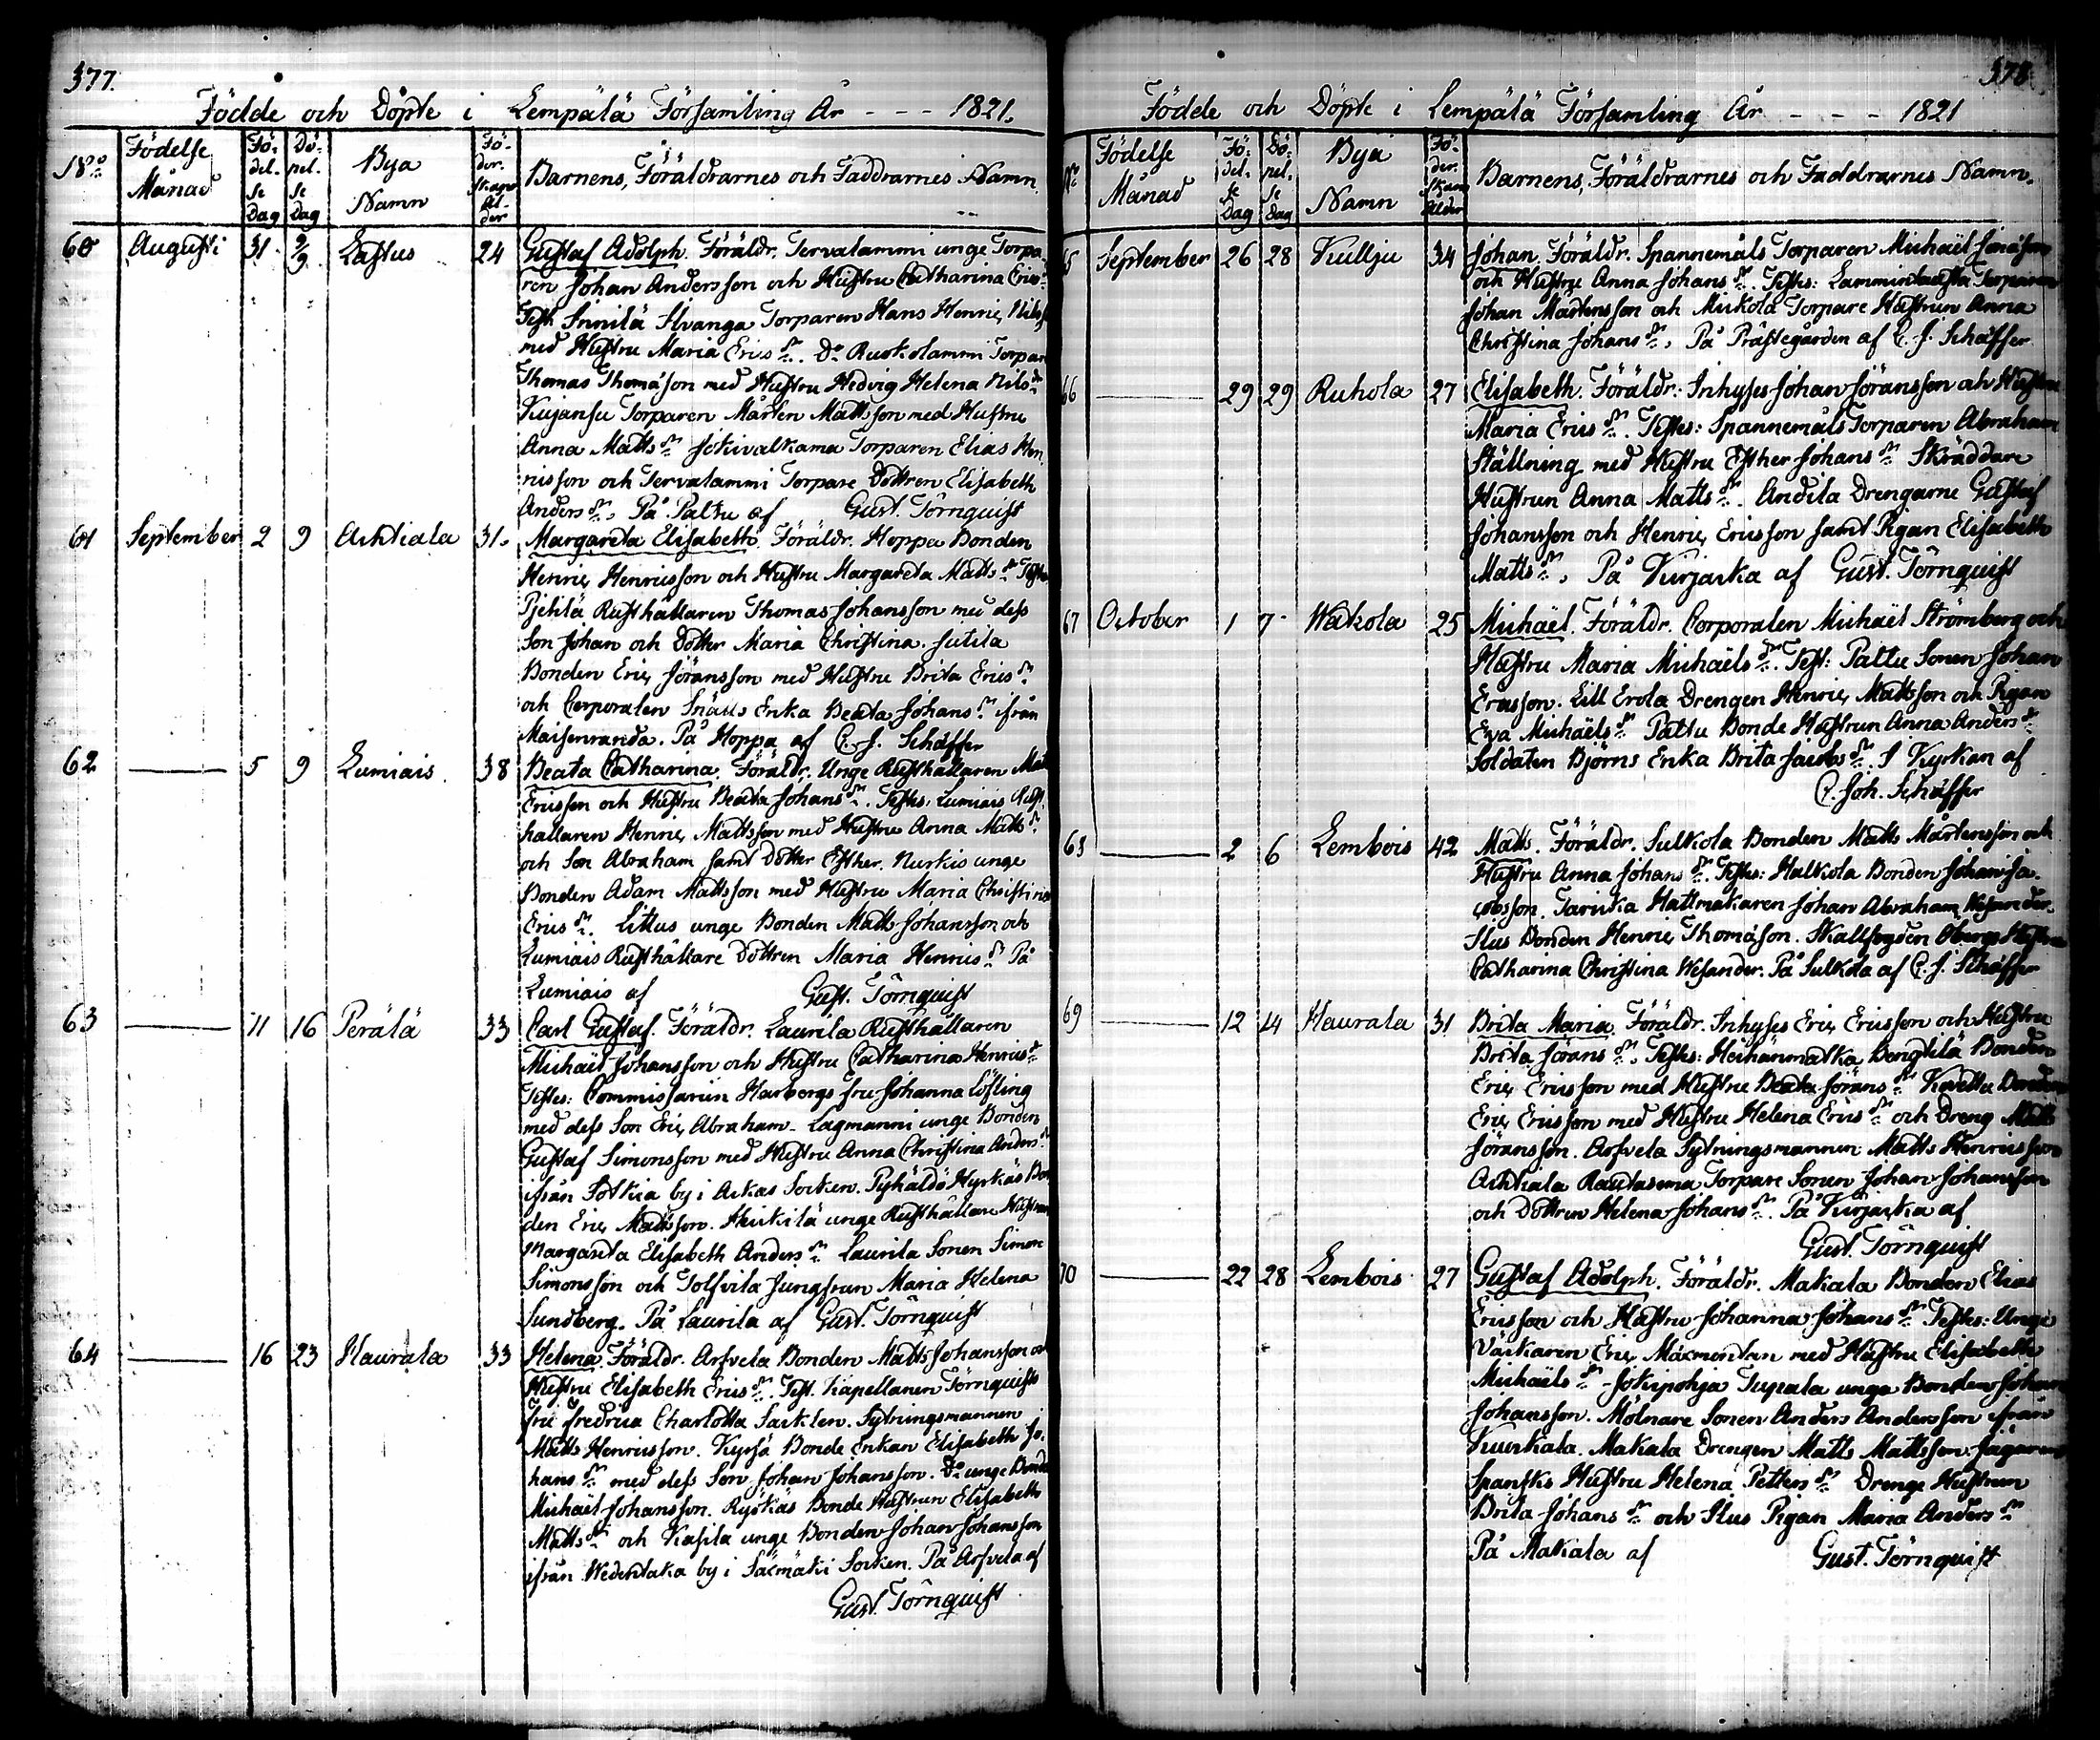 377.
Födde och Döpte i Lempälä Församling År - - - 1821.
18de Födelse Månad Födelse Dag Döpelse Dag Bya Namn Föderskans Ålder Barnens, Föräldrarnes och Faddrarnes Namn.
60 Augusti 31 2/9 Lastus 24 Gustaf Adolph. Föräldr. Tervalammi unge Torpa-
ren Johan Andersson och Hustru Catharina Erics
Test. Innilä Torparen Hans Henric Nils
med Hustru Maria Erics dr. Do Ruokolammi Torpar
Thomas Thomasson med Hustru Hedvig Helena Nils dr
Kujansu Torparen Mårten Mattsson med Hustru
Anna Matts dr Jokivalkama Torparen Elias Hen
ricsson och Tervalammi Torpare Dottren Elisabeth
Anders dr. På Paltu af Gust. Törnquist
61 September 2 9 Ahtiala 31. Margareta Elisabeth. Föräldr. Hoppa Bonden
Henric Henricsson och Hustru Margareta Matts dr Testes
Pjetilä Rusthållaren Thomas Johansson med dess
Son Johan och Dotter Maria Christina. Jutila
Bonden Eric Jöransson med Hustru Brita Erics dr
och Corporalen Snälls Enka Beata Johans dr ifrån
Maisenranda. På Hoppa af C. J. Schäffer
62 5 9 Lumiais 38 Beata Catharina. Föräldr. Unge Rusthållaren Matts
Ericsson och Hustru Beata Johans dr. Testes. Lumiais Rust
hållaren Henric Mattsson med Hustru Anna Matts dr
och Son Abraham samt Dotter Esther. Nurkis unge
Bonden Adam Mattsson med Hustru Maria Christina
Erics dr. Littus unge Bonden Matts Johansson och
Lumiais Rusthållare Dottren Maria Henrics dr På
Lumiais af Gust. Törnquist
63 11 16 Perälä 33 Carl Gustaf. Föräldr. Laurila Rusthållaren
Michaël Johansson och Hustru Catharina Henrics dr
Testes: Commissarien Harbergs fru Johanna Löfling
med dess Son Eric Abraham - Lagmanni unge Bonden
Gustaf Simonsson med Hustru Anna Christina Anders dr
ifrån Sotkia by i Ackas Socken. Pyhäldö Hyrkäs Bon
den Eric Mattsson. Heikkilä unge Rusthållare Hustrun
Margareta Elisabeth Anders dr Laurila Sonen Simon
Simonsson och Tolfvila Jungfrun Maria Helena
Sundberg. På Laurila af Gust. Törnquist
64 16 23 Haurala 33 Helena. Föräldr. Arfvela Bonden Matts Johansson och
Hustru Elisabeth Erics dr. Test. Kapellanen Törnquists
fru Fredrica Charlotta Sacklen. Sytningsmannen
Matts Henricsson. Kyrsä Bonde Enkan Elisabeth Jo-
hans dr med dess Son Johan Johansson. Do unge Bonde
Michaël Johansson. Ryökäs Bonde Hustrun Elisabeth
Matts dr och Kasila unge Bonden Johan Johansson
ifrån Wedentaka by i Säxmäki Socken. På Arfvela af
Gust. Törnquist
378.
Födde och Döpte i Lempälä Församling År - - - 1821
No Födelse Månad Födelse Dag Döpelse Dag Bya Namn Föderskans Ålder Barnens, Föräldrarnes och Faddrarnes Namn.
65 September 26 28 Kullju 34 Johan. Föräldr. Spannemåls Torparen Michaël Simonsson
och Hustru Anna Johans dr. Testes: Torparen
Johan Mårtensson och Mickola Torpare Hustrun Anna
Christina Johans dr. På Prästegården af C. J. Schäffer
66 29 29 Ruhola 27 Elisabeth. Föräldr: Inhyses Johan Jöransson och Hustru
Maria Erics dr. Testes: Spannemåls Torparen Abraham
Ställning med Hustru Esther Johans dr Skräddare
Hustrun Anna Matts dr. Andila Drengarne Gustaf
Johansson och Henric Ericsson samt Pigan Elisabeth
Matts dr. På Kurjaska af Gust. Törnquist
67 October 1 7 Wakola 25 Michaël. Föräldr. Corporalen Michaël Strömberg och
Hustru Maria Michaëls dr. Test: Paltu Sonen Johan
Ericsson. Lill Erola Drengen Henric Mattsson och Pigan
Eva Michaëls dr Paltu Bonde Hustrun Anna Anders dr
Soldaten Björns Enka Brita Jacobs dr. I Kyrkan af
C. Joh. Schäffer
68 2 6 Lembois 42 Matts. Föräldr. Sulkola Bonden Matts Mårtensson och
Hustru Anna Johans dr. Testes: Halkola Bonden Johan Ja-
cobsson. Taruka Hattmakaren Johan Abraham Wesander.
Ilus Bonden Henric Thomasson. Skallfogden Hustru
Catharina Christina Wesander. På Sulkola af C. J. Schäffer
69 12 14 Haurala 31 Brita Maria. Föräldr. Inhyses Eric Ericsson och Hustru
Brita Jörans dr. Testes: Heihänmatka Bengtilä Bonden
Eric Ericsson med Hustru Beata Jörans dr Kavettu Bonden
Eric Ericsson med Hustru Helena Erics dr och Dreng Matts
Jöransson. Arfvela Sytningsmannen Matts Henricsson
Ahtiala Rautasuma Torpare Sonen Johan Johansson
och Dottren Helena Johans dr. På Kurjaska af
Gust. Törnquist
70 22 28 Lembois 27 Gustaf Adolph. Föräldr. Makala Bonden Elias
Ericsson och Hustru Johanna Johans dr Testes: Unge
Väfkaren Eric Macmontan med Hustru Elisabeth
Michaëls dr - Jokipohja Tupala unga Bonden Johan
Johansson. Mölnare Sonen Anders Andersson ifrån
Kuurkiala. Makala Drengen Matts Mattsson Jägaren
Spansks Hustru Helena Petters dr Drenge Hustrun
Brita Johans dr och Ilus Pigan Maria Anders dr
På Makala af Gust. Törnquist